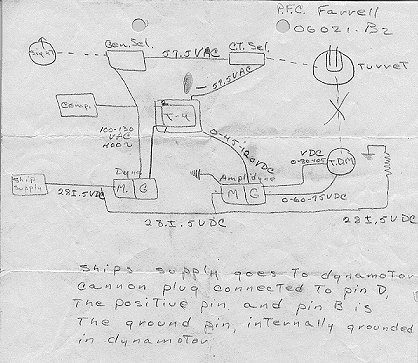 P.F.C. Farrell
06021.B2
Gen. Sel.
57.5VAC
C.T. Sel.
Sight
57.5VAC
Turret
Comp.
T-4
100-130
VAC
400~
0-45-120VDC
VDC
Dyna
Amplidyne
T.D.M
Ship
Supply
M. G
M G
0-60-75VDC
28±.5VDC
28±.5VDC
28±.5VDC
Ships supply goes to dynamotor
cannon plug connected to pin D,
The positive pin, and pin B is
The ground pin, internally grounded
in dynamotor